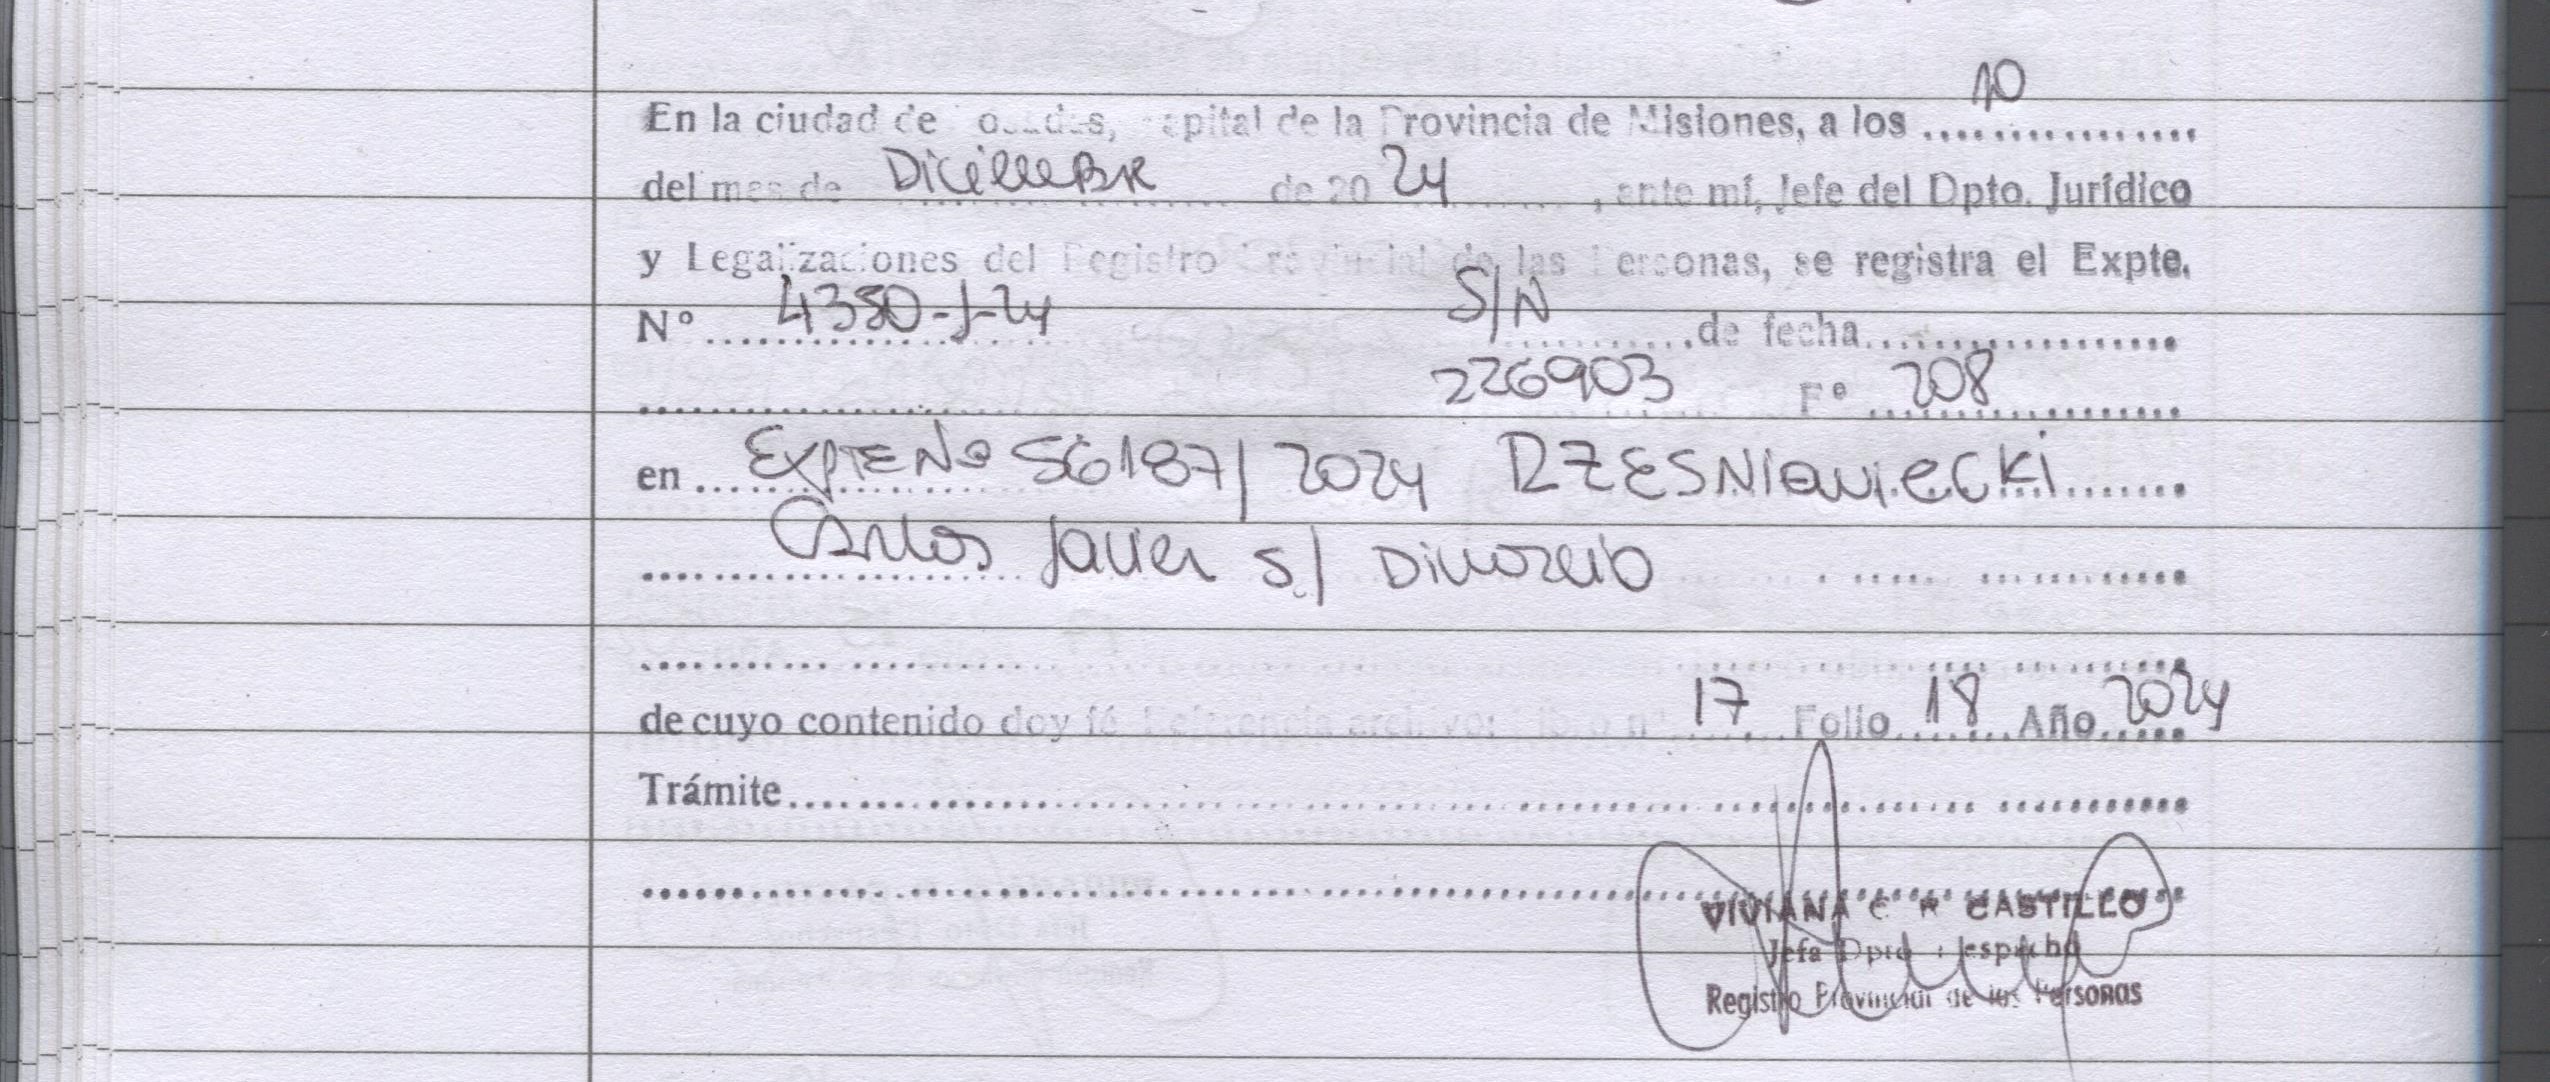 10
En la ciudad de Posadas, Capital de la Provincia de Misiones, a los ................
del mes de Diciembre de 20 24 , ante mí, Jefe del Dpto. Jurídico
y Legalizaciones del Registro Provincial de las Personas, se registra el Expte.
Nº 4350-J-24 S/N de fecha
226903 Fº 208
en Expte Nº 56187/2024 RZESNIOWIECKI
Carlos Javier s/ Divorcio
de cuyo contenido doy fé Referencia archivo: libro nº 17 Folio 18 Año 2024
Trámite
VIVIANA C. R. CASTILLO
Jefa Dpto Despacho
Registro Provincial de las Personas